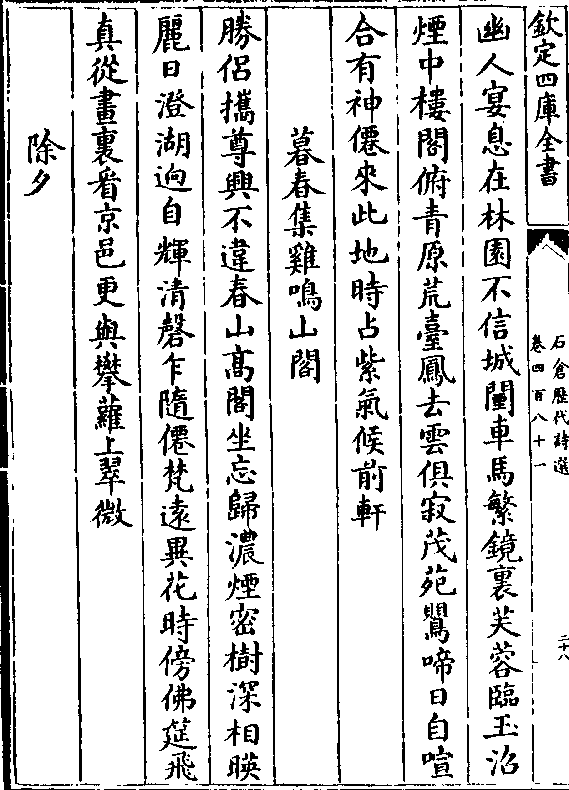 欽定四庫全書
石倉歷代詩選
卷四百八十一
二十八
幽人宴息在林園不信城闉車馬繁鏡裏芙蓉臨玉沼
煙中樓閣俯青原荒臺鳳去雲俱寂茂苑鸎啼日自喧
合有神僊來此地時占紫氣候前軒
暮春集雞鳴山閣
勝侶攜尊興不違春山高閣坐忘歸濃煙密樹深相暎
麗日澄湖逈自輝清磬乍隨僊梵遠異花時傍佛筵飛
真從畫裏看京邑更與攀蘿上翠微
除夕